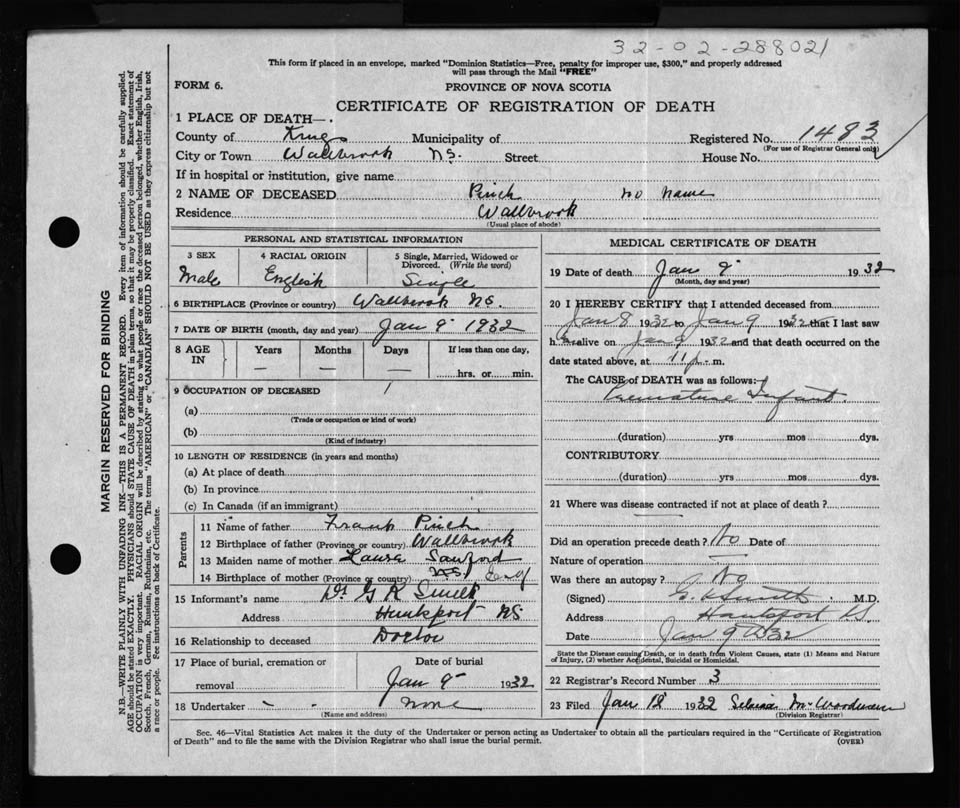 32-02-288021
This form if placed in an envelope, marked "Dominion Statistics—Free, penalty for improper use, $300," and properly addressed
will pass through the Mail "FREE"
FORM 6.
PROVINCE OF NOVA SCOTIA
CERTIFICATE OF REGISTRATION OF DEATH
1 PLACE OF DEATH—.
County of Kings Municipality of Registered No. 1483
(For use of Registrar General only)
City or Town Wallbrook N.S. Street House No.
If in hospital or institution, give name
2 NAME OF DECEASED Pinch no name
Residence Wallbrook
(Usual place of abode)
PERSONAL AND STATISTICAL INFORMATION
3 SEX 4 RACIAL ORIGIN 5 Single, Married, Widowed or Divorced. (Write the word)
Male English Single
6 BIRTHPLACE (Province or country) Wallbrook N.S.
7 DATE OF BIRTH (month, day and year) Jan 8 1932
8 AGE IN Years Months Days If less than one day,
— — — hrs. or min.
9 OCCUPATION OF DECEASED
(a)
(Trade or occupation or kind of work)
(b)
(Kind of industry)
10 LENGTH OF RESIDENCE (in years and months)
(a) At place of death
(b) In province
(c) In Canada (if an immigrant)
Parents
11 Name of father Frank Pinch
12 Birthplace of father (Province or country) Wallbrook
13 Maiden name of mother Laura Sanford
14 Birthplace of mother (Province or country) N.S.
15 Informant's name Dr G R Smith
Address Hantsport N.S
16 Relationship to deceased Doctor
17 Place of burial, cremation or removal Date of burial
Jan 9 1932
18 Undertaker - - none
(Name and address)
MEDICAL CERTIFICATE OF DEATH
19 Date of death Jan 9 1932
(Month, day and year)
20 I HEREBY CERTIFY that I attended deceased from
Jan 8 1932 to Jan 9 1932 that I last saw
h alive on Jan 9 1932 and that death occurred on the
date stated above, at 11 p. m.
The CAUSE of DEATH was as follows:
Premature Infant
(duration) yrs mos dys.
CONTRIBUTORY
(duration) yrs mos dys.
21 Where was disease contracted if not at place of death?
Did an operation precede death? No Date of
Nature of operation —
Was there an autopsy? No
(Signed) Smith M.D.
Address Hantsport N.S.
Date Jan 9 1932
State the Disease causing Death, or in death from Violent Causes, state (1) Means and Nature
of Injury, (2) whether Accidental, Suicidal or Homicidal.
22 Registrar's Record Number 3
23 Filed Jan 18 1932 Woodman
(Division Registrar)
Sec. 46—Vital Statistics Act makes it the duty of the Undertaker or person acting as Undertaker to obtain all the particulars required in the "Certificate of Registration
of Death" and to file the same with the Division Registrar who shall issue the burial permit.
(OVER)
MARGIN RESERVED FOR BINDING
N.B.—WRITE PLAINLY WITH UNFADING INK—THIS IS A PERMANENT RECORD. Every item of information should be carefully supplied.
AGE should be stated EXACTLY. PHYSICIANS should STATE CAUSE OF DEATH in plain terms, so that it may be properly classified. Exact statement of
OCCUPATION is very important. RACIAL ORIGIN will be described by stating to what people or race the deceased person belonged, whether English, Irish,
Scotch, French, German, Russian, Ruthenian, etc. The terms "AMERICAN" or "CANADIAN" SHOULD NOT BE USED as they express citizenship but not
a race or people. Fee instructions on back of Certificate.